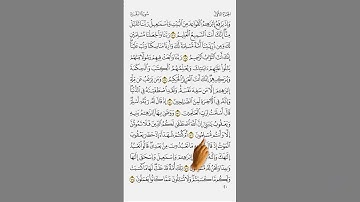 الجزء الأول سورة البقرة
وَإِذْ يَرْفَعُ إِبْرَٰهِـۧمُ ٱلْقَوَاعِدَ مِنَ ٱلْبَيْتِ وَإِسْمَٰعِيلُ رَبَّنَا تَقَبَّلْ
مِنَّآ إِنَّكَ أَنتَ ٱلسَّمِيعُ ٱلْعَلِيمُ رَبَّنَا وَٱجْعَلْنَا مُسْلِمَيْنِ
لَكَ وَمِن ذُرِّيَّتِنَآ أُمَّةً مُّسْلِمَةً لَّكَ وَأَرِنَا مَنَاسِكَنَا وَتُبْ عَلَيْنَآ
إِنَّكَ أَنتَ ٱلتَّوَّابُ ٱلرَّحِيمُ رَبَّنَا وَٱبْعَثْ فِيهِمْ رَسُولًا مِّنْهُمْ
يَتْلُوا۟ عَلَيْهِمْ ءَايَٰتِكَ وَيُعَلِّمُهُمُ ٱلْكِتَٰبَ وَٱلْحِكْمَةَ
وَيُزَكِّيهِمْ إِنَّكَ أَنتَ ٱلْعَزِيزُ ٱلْحَكِيمُ وَمَن يَرْغَبُ عَن مِّلَّةِ
إِبْرَٰهِـۧمَ إِلَّا مَن سَفِهَ نَفْسَهُۥ وَلَقَدِ ٱصْطَفَيْنَٰهُ فِى ٱلدُّنْيَا
وَإِنَّهُۥ فِى ٱلْءَاخِرَةِ لَمِنَ ٱلصَّٰلِحِينَ إِذْ قَالَ لَهُۥ رَبُّهُۥٓ أَسْلِمْ
قَالَ أَسْلَمْتُ لِرَبِّ ٱلْعَٰلَمِينَ وَوَصَّىٰ بِهَآ إِبْرَٰهِـۧمُ بَنِيهِ
وَيَعْقُوبُ يَٰبَنِىَّ إِنَّ ٱللَّهَ ٱصْطَفَىٰ لَكُمُ ٱلدِّينَ فَلَا تَمُوتُنَّ
إِلَّا وَأَنتُم مُّسْلِمُونَ أَمْ كُنتُمْ شُهَدَآءَ إِذْ حَضَرَ يَعْقُوبَ
ٱلْمَوْتُ إِذْ قَالَ لِبَنِيهِ مَا تَعْبُدُونَ مِنۢ بَعْدِى قَالُوا۟ نَعْبُدُ
إِلَٰهَكَ وَإِلَٰهَ إِبْرَٰهِـۧمَ وَإِسْمَٰعِيلَ وَإِسْحَٰقَ إِلَٰهًا
لَهَا مَا كَسَبَتْ
وَلَكُم مَّا كَسَبْتُمْ وَلَا تُسْـَٔلُونَ عَمَّا كَانُوا۟ يَعْمَلُونَ
٢٠